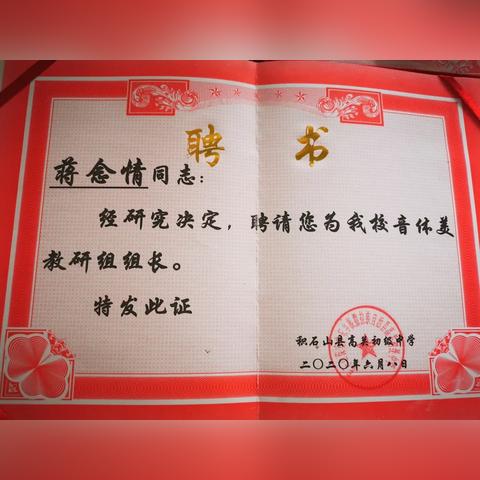 聘 书
蒋念情同志:
经研究决定,聘请您为我校音体美
教研组组长。
特发此证
积石山县高关初级中学
二〇二〇年六月八日